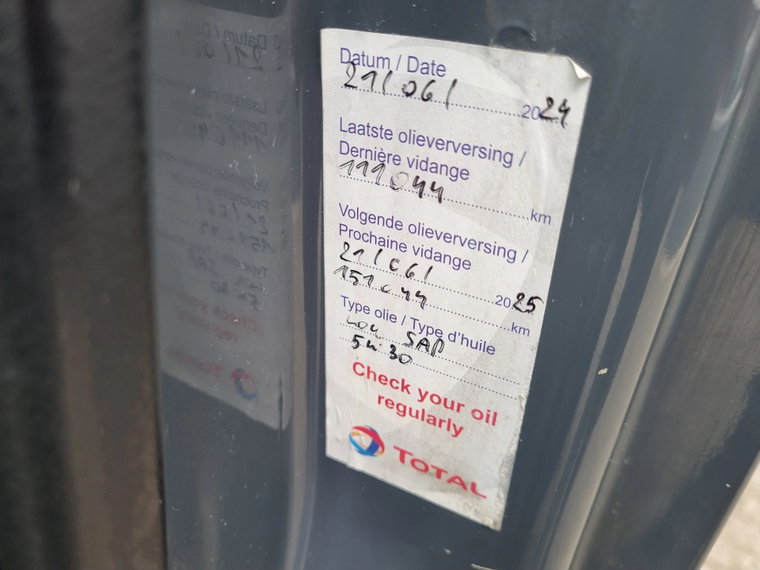 Datum / Date
21/06/ 2024
Laatste olieverversing /
Dernière vidange
111044 km
Volgende olieverversing /
Prochaine vidange
21/06/ 2025
151044 km
Type olie / Type d'huile
Low SAP
5w30
Check your oil
regularly
TOTAL